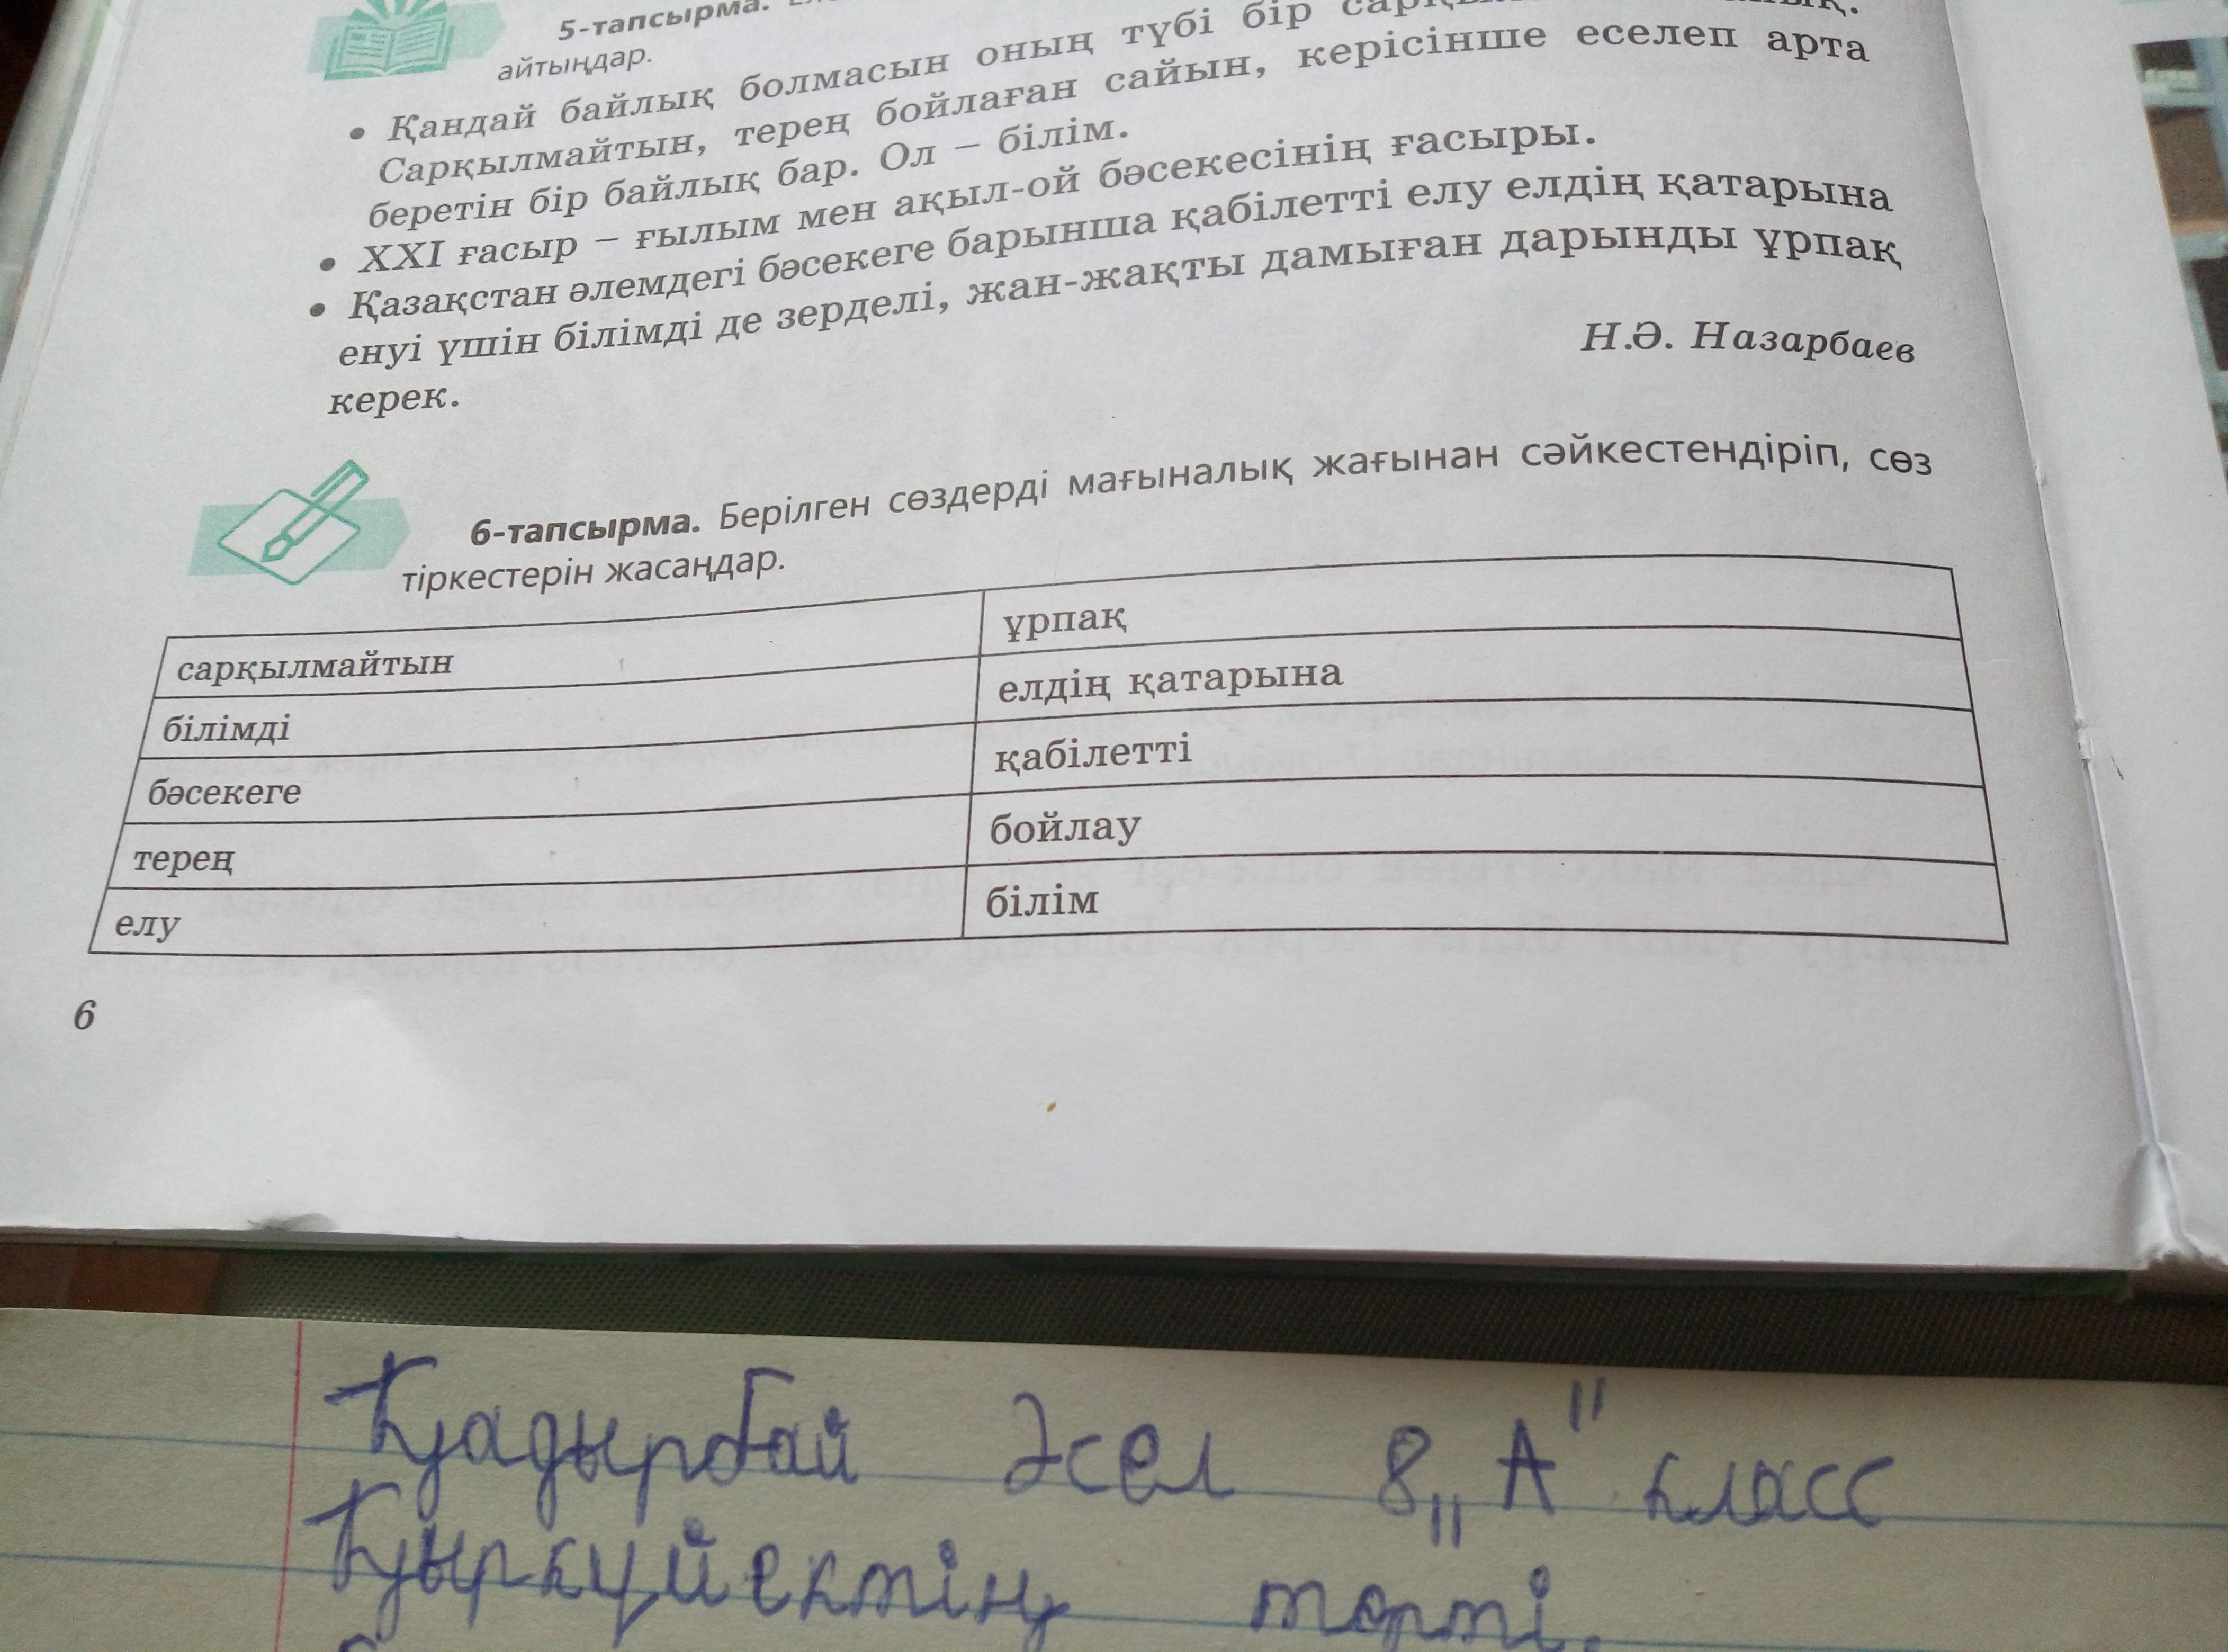 5-тапсырма.
айтыңдар.
• Қандай байлық болмасын оның түбі бір
Сарқылмайтын, терең бойлаған сайын, керісінше еселеп арта
беретін бір байлық бар. Ол – білім.
• XXI ғасыр – ғылым мен ақыл-ой бәсекесінің ғасыры.
• Қазақстан әлемдегі бәсекеге барынша қабілетті елу елдің қатарына
енуі үшін білімді де зерделі, жан-жақты дамыған дарынды ұрпақ
керек.
Н.Ә. Назарбаев
6-тапсырма. Берілген сөздерді мағыналық жағынан сәйкестендіріп, сөз
тіркестерін жасаңдар.
сарқылмайтын ұрпақ
білімді елдің қатарына
бәсекеге қабілетті
терең бойлау
елу білім
6
Қадырбай Әсел 8 „А" класс
Қыркүйектің төрті.